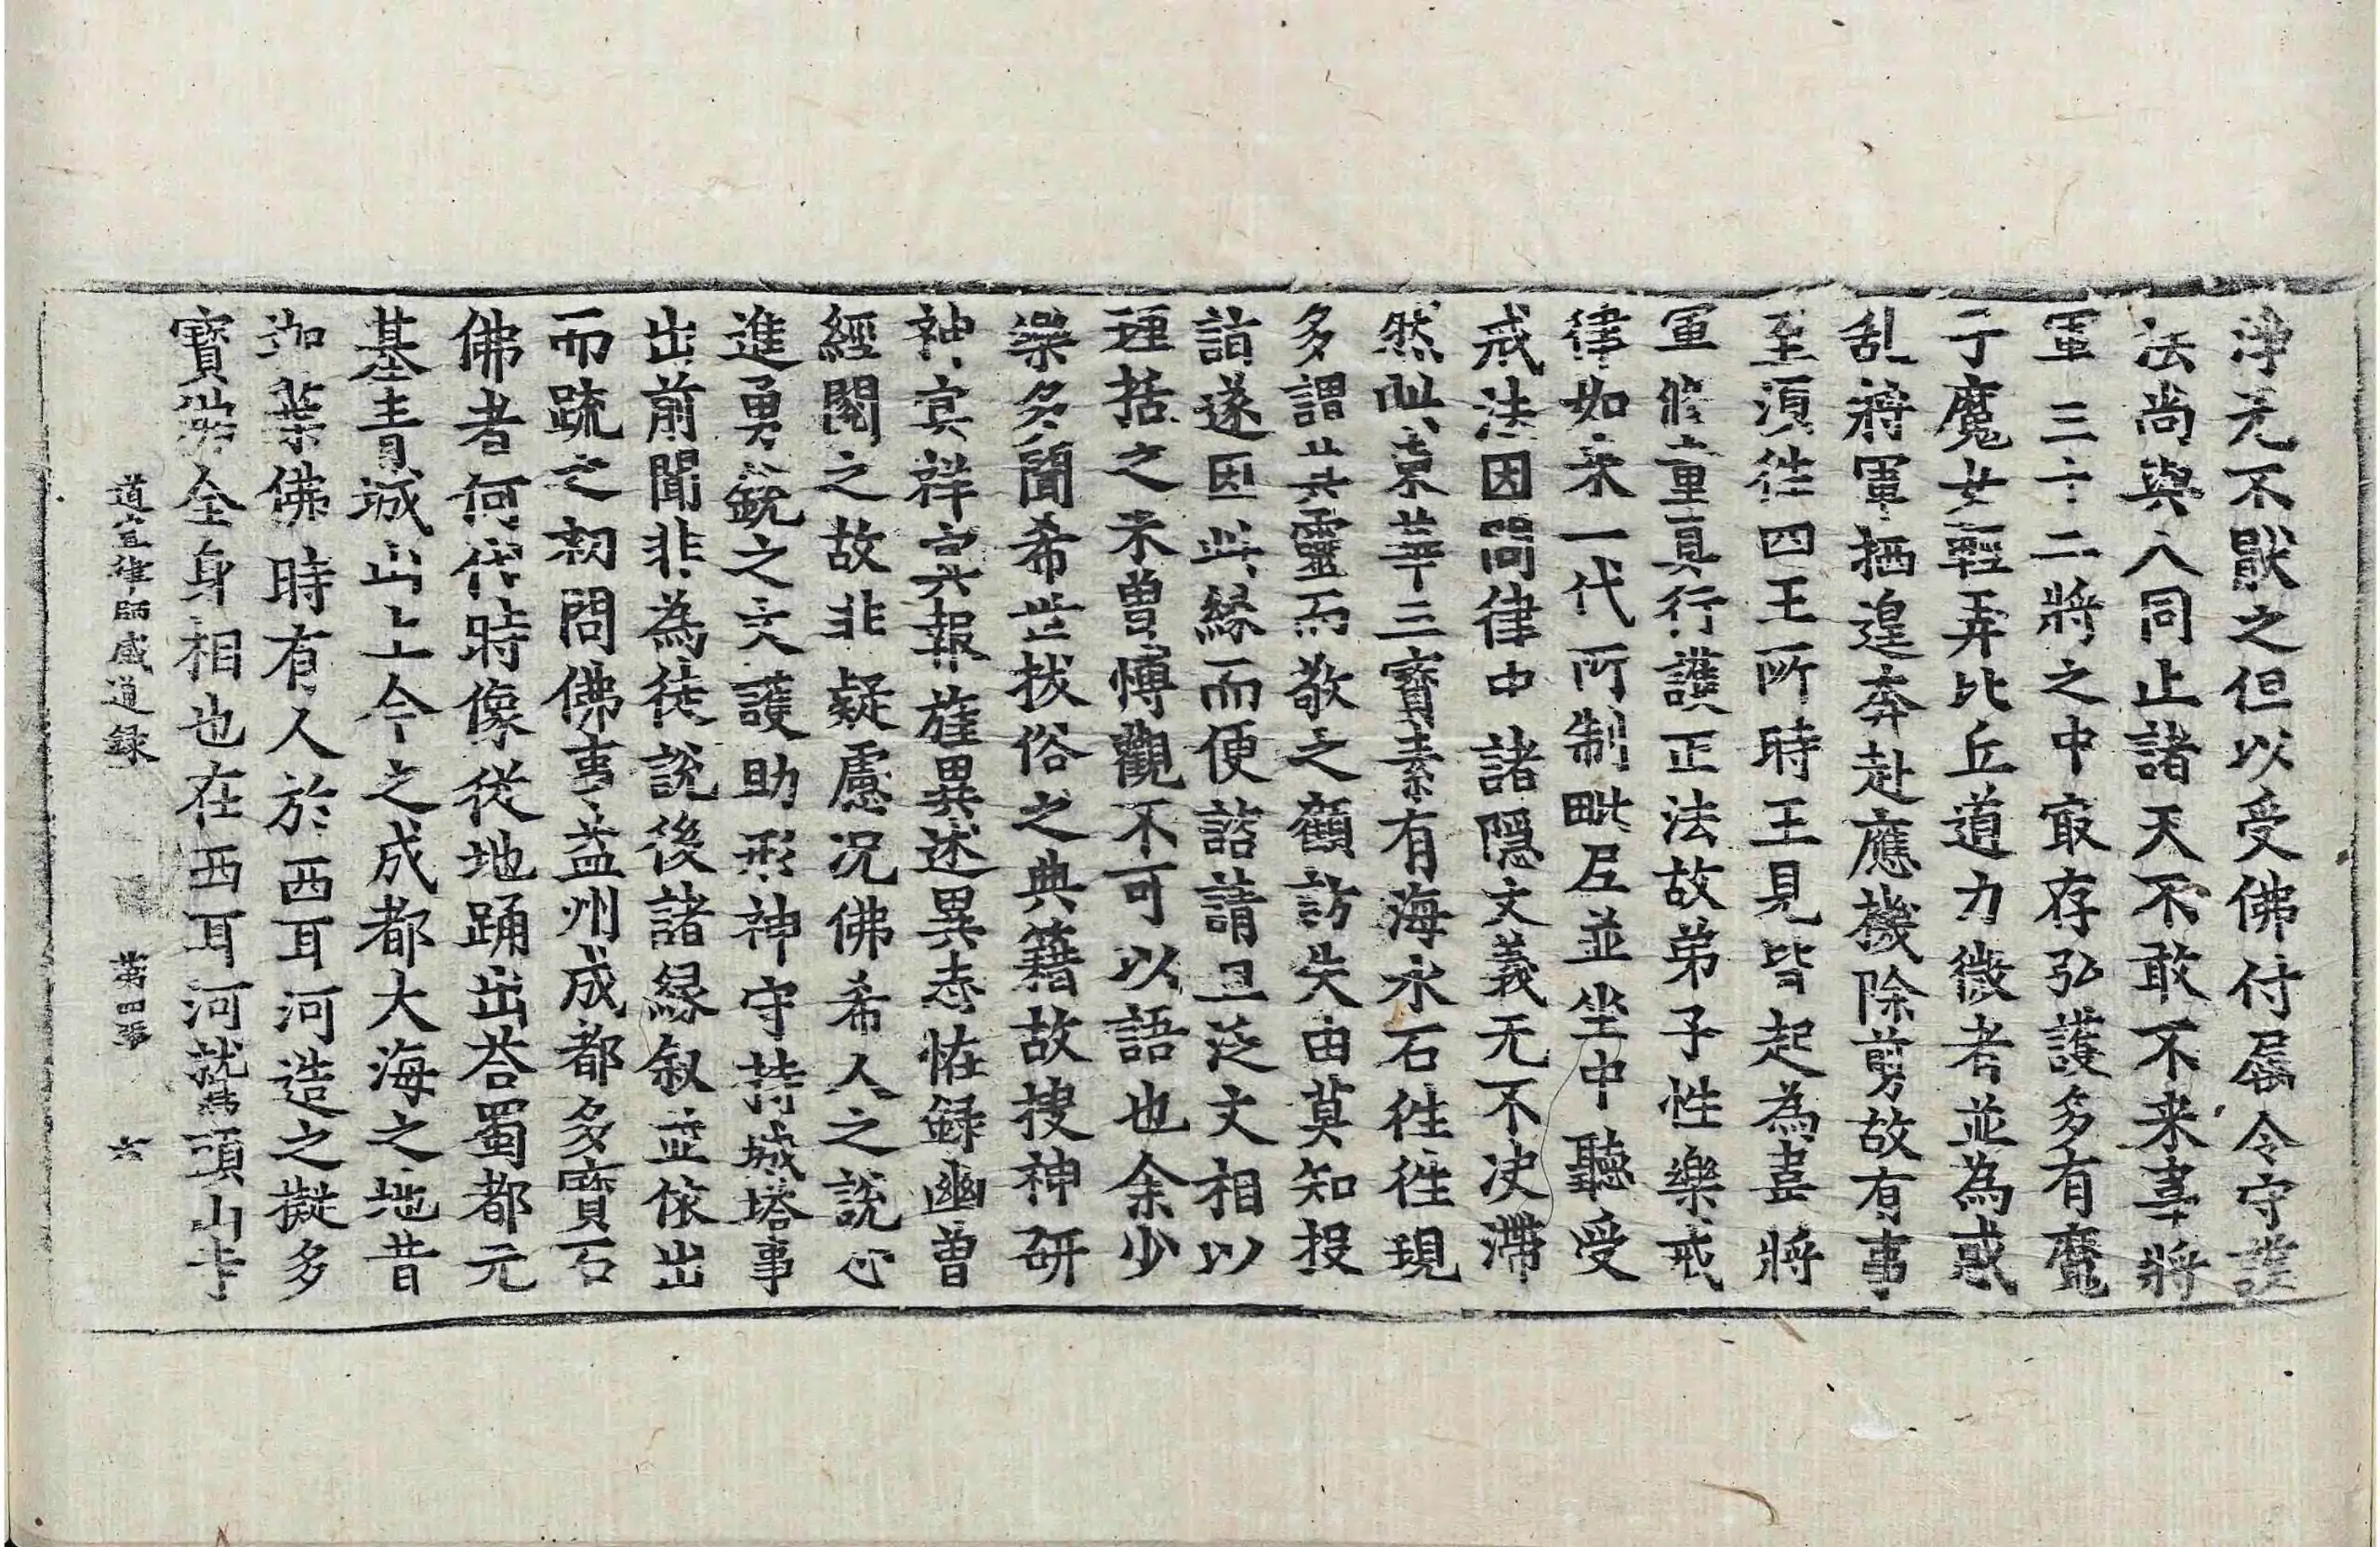 淨无不猒之但以受佛付屬令守護
法尚與人同止諸天不敢不来韋將
軍三十二將之中㝡存弘護多有魔
子魔女輕弄比丘道力微者並為惑
乱將軍栖遑奔赴應機除剪故有事
至須往四王所時王見皆起為韋將
軍修童真行護正法故弟子性樂戒
律如来一代所制毗尼並坐中聽受
戒法因問律中諸隠文義无不决滯
然此東華三寶素有海水石往往現
多謂其靈而敬之顧訪失由莫知投
詣遂因此縁而便諮請且泛文相以
理括之未曽博觀不可以語也余少
樂多聞希世拔俗之典籍故搜神研
神冥祥冥報旌異述異志恠録幽曽
經閱之故非疑慮况佛希人之說心
進勇銳之文護助形神守持城塔事
出前聞非為徒說後諸縁叙並依出
而疏之初問佛事益州成都多寶石
佛者何代時像從地踊出荅蜀都元
基青城山上今之成都大海之地昔
迦葉佛時有人於西耳河造之擬多
寶佛全身相也在西耳河鷲頭山寺
道宣律師感通録 第四張 六